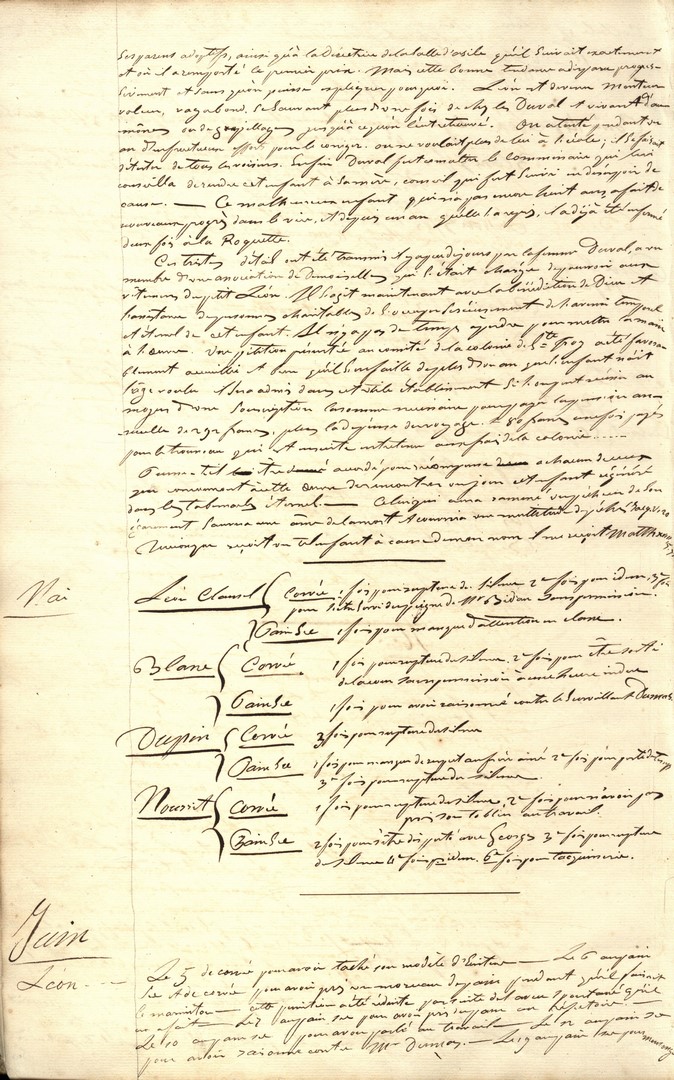 ses parens adoptifs, ainsi qu'à la Directrice de la salle d'asile qu'il suivait exactement
et où il a remporté le premier prix. Mais cette bonne tendance a disparu progres-
sivement et sans qu'on puisse expliquer pourquoi. Léon est devenu menteur
voleur, vagabond, se sauvant plus d'une fois de chez les Duval et vivant d'au
mônes ou de gaspillages jusqu'à ce qu'on l'eut retrouvé. On a tenté pendant un
an d'infructueux efforts pour le corriger. on ne voulait plus de lui à l'école; il se faisait
détester de tous les voisins. Enfin Duval fut connaître le Commissaire qui lui
conseilla de rendre cet enfant à sa mère, conseil qui fut suivi en désespoir de
cause. — Ce malheureux enfant qui n'a pas encore huit ans a fait de
nouveaux progrès dans le vice, et depuis un an qu'elle l'a repris, il a déjà été enfermé
deux fois à la Roquette.
Ces tristes détails ont été transmis il y a quelques jours par la femme Duval, à un
membre d'une association de Demoiselles qui s'était chargé de pourvoir aux
vêtemens du petit Léon. Il s'agit maintenant avec la bénédiction de Dieu et
l'assistance de personnes charitables de s'occuper sérieusement de l'avenir temporel
et éternel de cet enfant. Il n'y a pas de temps à perdre pour mettre la main
à l'œuvre. Une pétition présentée au comité de la colonie de Ste Foy a été favora
blement accueillie et bien qu'il s'en faille de plus d'un an que l'enfant n'ait
l'âge voulu il sera admis dans cet utile établissement si l'on peut réunir au
moyen d'une souscription la somme nécessaire pour payer la pension an-
nuelle de francs, plus la dépense du voyage et 80 francs une fois payés
pour le trousseau qui est ensuite entretenu aux frais de la colonie......
Puisse-t-il être accordé pour récompense à chacun de ceux
qui concourront à cette œuvre de rencontrer un jour cet enfant régénéré
dans les tabernacles éternels. — Celui qui aura ramené un pécheur de son
égarement sauvera une âme de la mort et couvrira une multitude de péchés Jacq.
Quiconque reçoit un tel enfant à cause de mon nom il me reçoit Matth.
Mai
Léon Clausel Corvée 1 fois pour rupture de silence 2e fois pour idem, 3e fois
pour s'être servi du peigne de Mr Bidau sans permission.
Pain Sec 1 fois pour manque d'attention en classe.
Blanc Corvée 1 fois pour rupture de silence, 2e fois pour être sorti
de la cour sans permission à une heure indue
Pain Sec 1 fois pour avoir raisonné contre le Surveillant Dumas
Dupin Corvée 3 fois pour rupture de silence
Pain Sec 1 fois pour manque de respect au frère ainé 2e fois pour perte de temps
3e fois pour rupture du silence.
Nourrit Corvée 1 fois pour rupture de silence, 2e fois pour n'avoir pas
pris son tablier au travail.
Pain Sec 2 fois pour s'être disputé avec Georges 3e fois pour rupture
de silence 4e fois pr idem. 6e fois pour taquinerie.
Juin
Léon
Le 5 de corvée pour avoir taché son modèle d'Ecriture — Le 6 au pain
sec et de corvée pour avoir pris un morceau de pain pendant qu'il faisait
le marmiton — cette punition a été réduite par suite de l'aveu spontané qu'il
en a fait — Le 7 au pain sec pour avoir pris du pain au réfectoire —
Le 10 au pain sec pour avoir parlé au travail — Le 12 au pain sec
pour avoir raisonné contre Mr Dumas. — Le 19 au pain sec pour mensonge